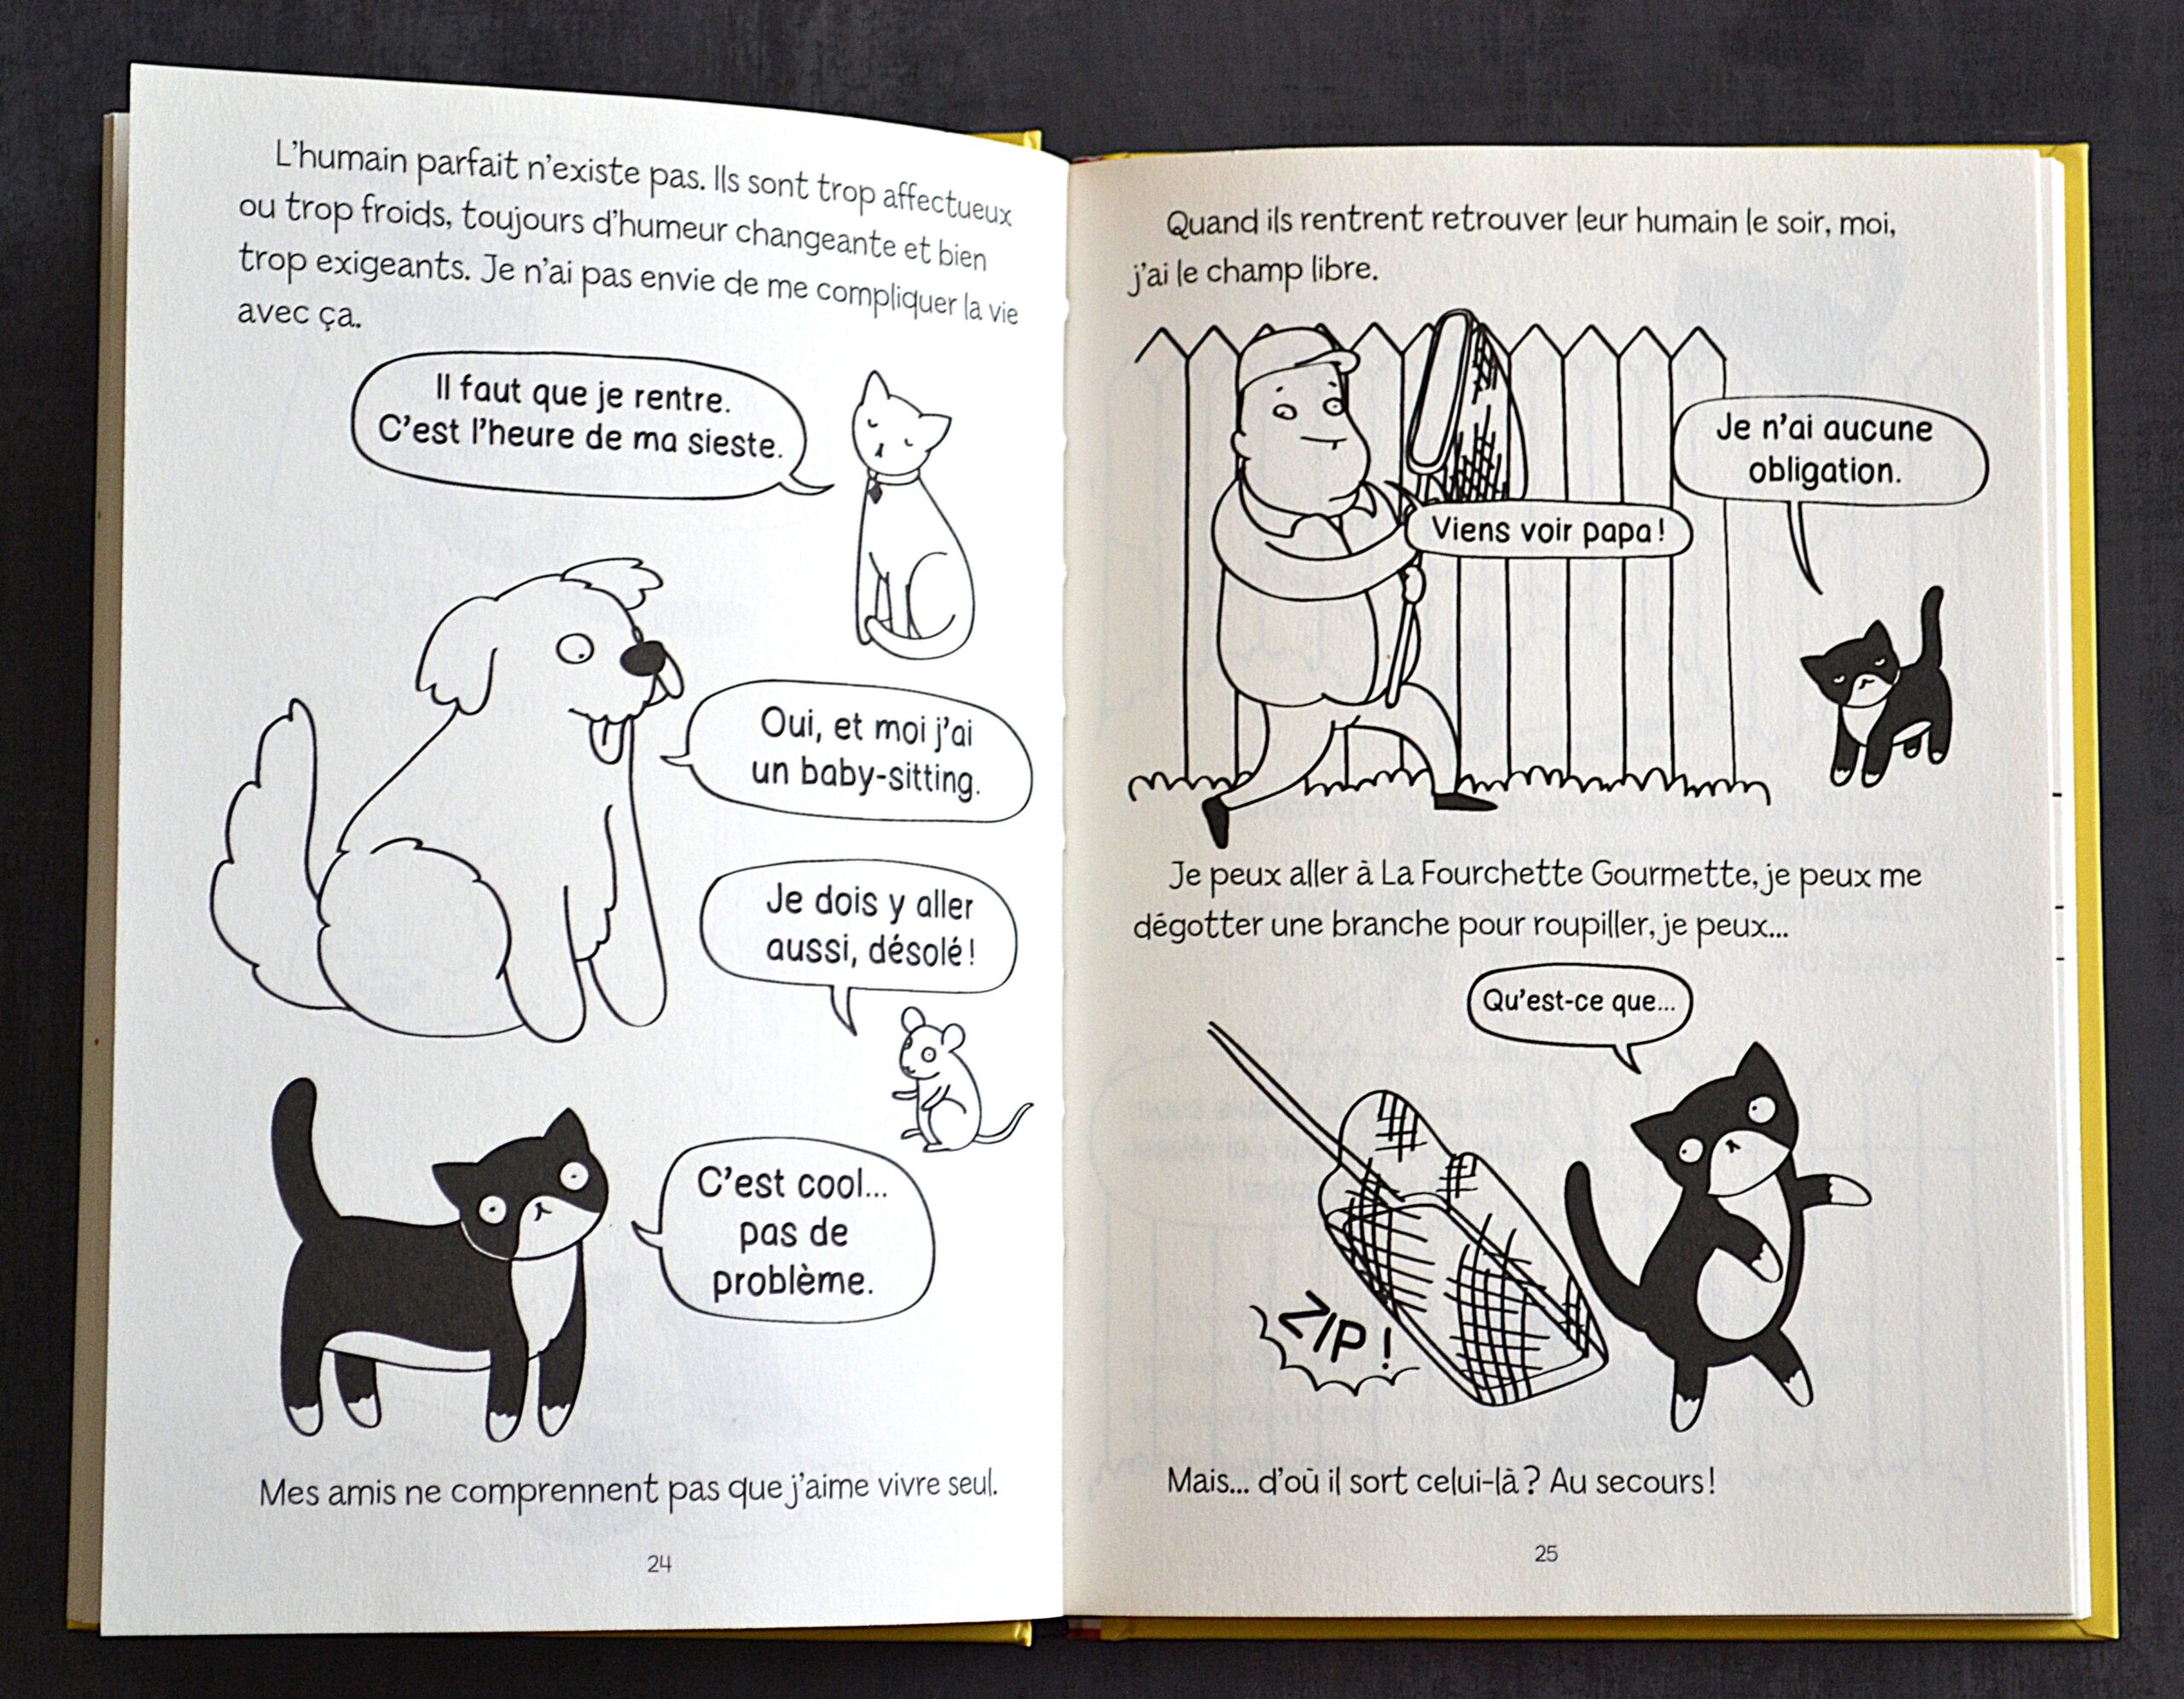 L'humain parfait n'existe pas. Ils sont trop affectueux
ou trop froids, toujours d'humeur changeante et bien
trop exigeants. Je n'ai pas envie de me compliquer la vie
avec ça.
Il faut que je rentre.
C'est l'heure de ma sieste.
Oui, et moi j'ai
un baby-sitting.
Je dois y aller
aussi, désolé !
C'est cool...
pas de
problème.
Mes amis ne comprennent pas que j'aime vivre seul.
24
Quand ils rentrent retrouver leur humain le soir, moi,
j'ai le champ libre.
Viens voir papa !
Je n'ai aucune
obligation.
Je peux aller à La Fourchette Gourmette, je peux me
dégotter une branche pour roupiller, je peux...
Qu'est-ce que...
ZIP !
Mais... d'où il sort celui-là ? Au secours !
25